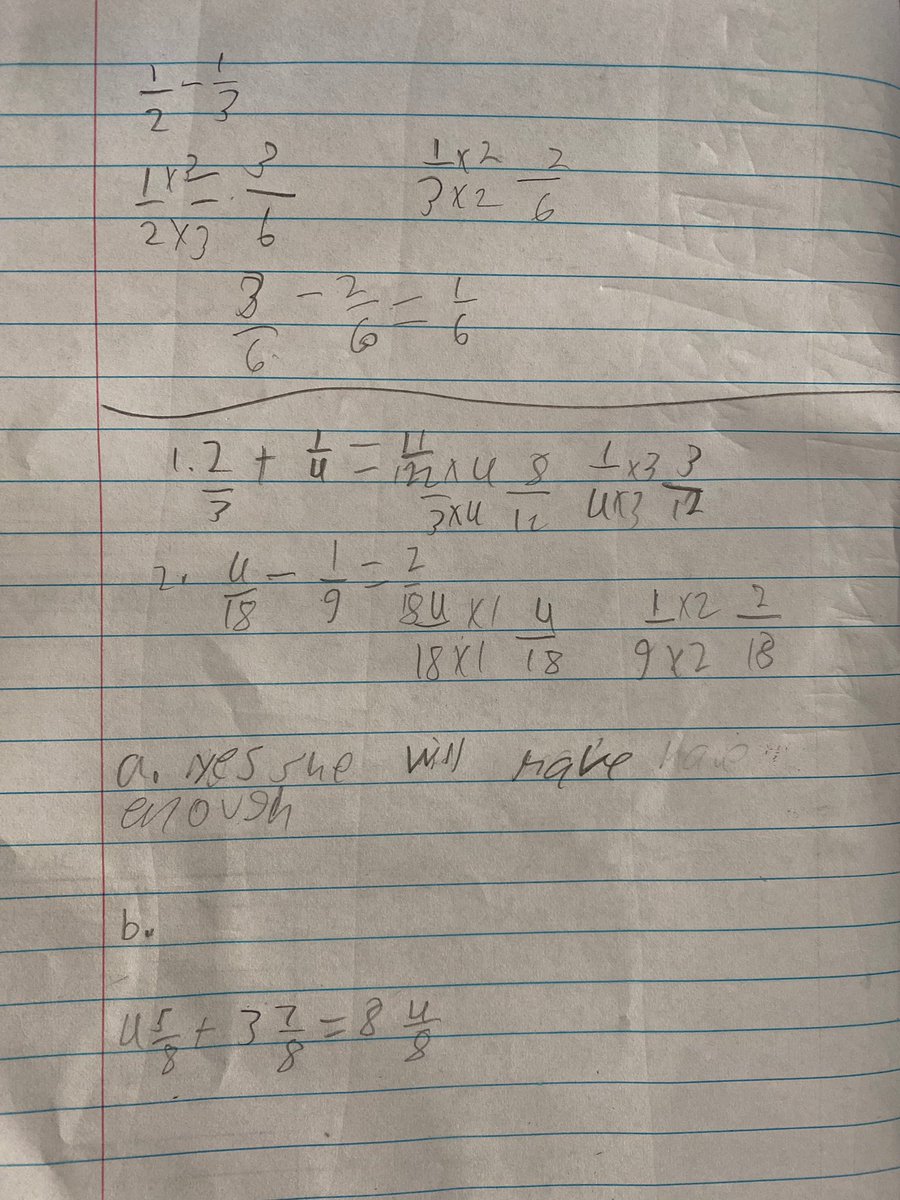 1/2 - 1/3
1×3/2×3 = 3/6 1×2/3×2 2/6
3/6 - 2/6 = 1/6
1. 2/3 + 1/4 = 11/12 2×4/3×4 8/12 1×3/4×3 3/12
2. 4/18 - 1/9 = 2/18 4×1/18×1 4/18 1×2/9×2 2/18
a. yes she will have have
enough
b.
4 5/8 + 3 7/8 = 8 4/8